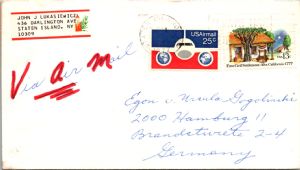 JOHN J LUKASIEWICZ
436 DARLINGTON AVE
STATEN ISLAND, NY
10309
USAirmail
25c
First Civil Settlement Alta California 1777
USA 13c
Via Air Mail
Egon v Ursula Gogolinski
2000 Hamburg 11
Brandstwiete 2-4
Germany